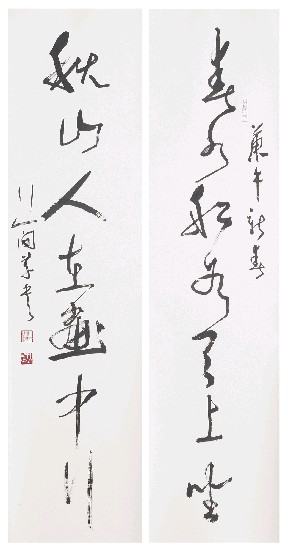 春水船如天上坐
午新春
秋山人在畫中行